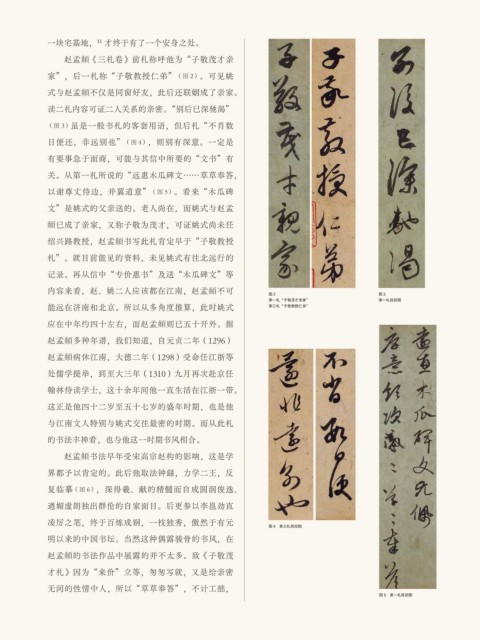 一块宅墓地，¹¹ 才终于有了一个安身之处。
赵孟頫《三札卷》前札称呼他为“子敬茂才亲
家”，后一札称“子敬教授仁弟”（图2）。可见姚
式与赵孟頫不仅是同窗好友，此后还联姻成了亲家。
读二札内容可证二人关系的亲密。“别后已深驰渴”
（图3）虽是一般书札的客套用语，但后札“不肖数
日便还，非远别也”（图4），则别有深意。一定是
有要事急于面商，可能与其信中所要的“文书”有
关。从第一札所说的“远惠木瓜碑文……草草奉答，
以谢尊丈侍边，并冀道意”（图5）。看来“木瓜碑
文”是姚式的父亲送的。老人尚在，而姚式与赵孟
頫已成了亲家，又称子敬为茂才，可证姚式尚未任
绍兴路教授，赵孟頫书写此札肯定早于“子敬教授
札”。就目前能见的资料，未见姚式有往北远行的
记录。再从信中“专价惠书”及送“木瓜碑文”等
内容来看，赵、姚二人应该都在江南，赵孟頫不可
能远在济南和北京。所以从多角度推算，此时姚式
应在中年约四十左右，而赵孟頫则已五十开外。据
赵孟頫多种年谱，我们知道，自元贞二年（1296）
赵孟頫病休江南，大德二年（1298）受命任江浙等
处儒学提举，到至大三年（1310）九月再次赴京任
翰林侍读学士，这十余年间他一直生活在江浙一带。
这正是他四十二岁至五十七岁的盛年时期，也是他
与江南文人特别与姚式交往最密的时期。而从此札
的书法丰神看，也与他这一时期书风相合。
赵孟頫书法早年受宋高宗赵构的影响，这是学
界都予以肯定的。此后他取法钟繇，力学二王，反
复临摹（图6），深得羲、献的精髓而自成圆润俊逸、
遒媚虚朗独出群伦的自家面目。后更参以李邕劲直
凌厉之笔，终于百炼成钢，一枝独秀，傲然于有元
明以来的中国书坛。当然这种偶露骏骨的书风，在
赵孟頫的书法作品中展露的并不太多。致《子敬茂
才札》因为“来价”立等，匆匆写就，又是给亲密
无间的性情中人，所以“草草奉答”，不计工拙，
子敬茂才親家
子敬教授仁弟
图2
第一札“子敬茂才亲家”
第三札“子敬教授仁弟”
别後已深馳渴
图3
第一札局部图
不肖數日便
還非遠别也
图4 第三札局部图
图5 第一札局部图